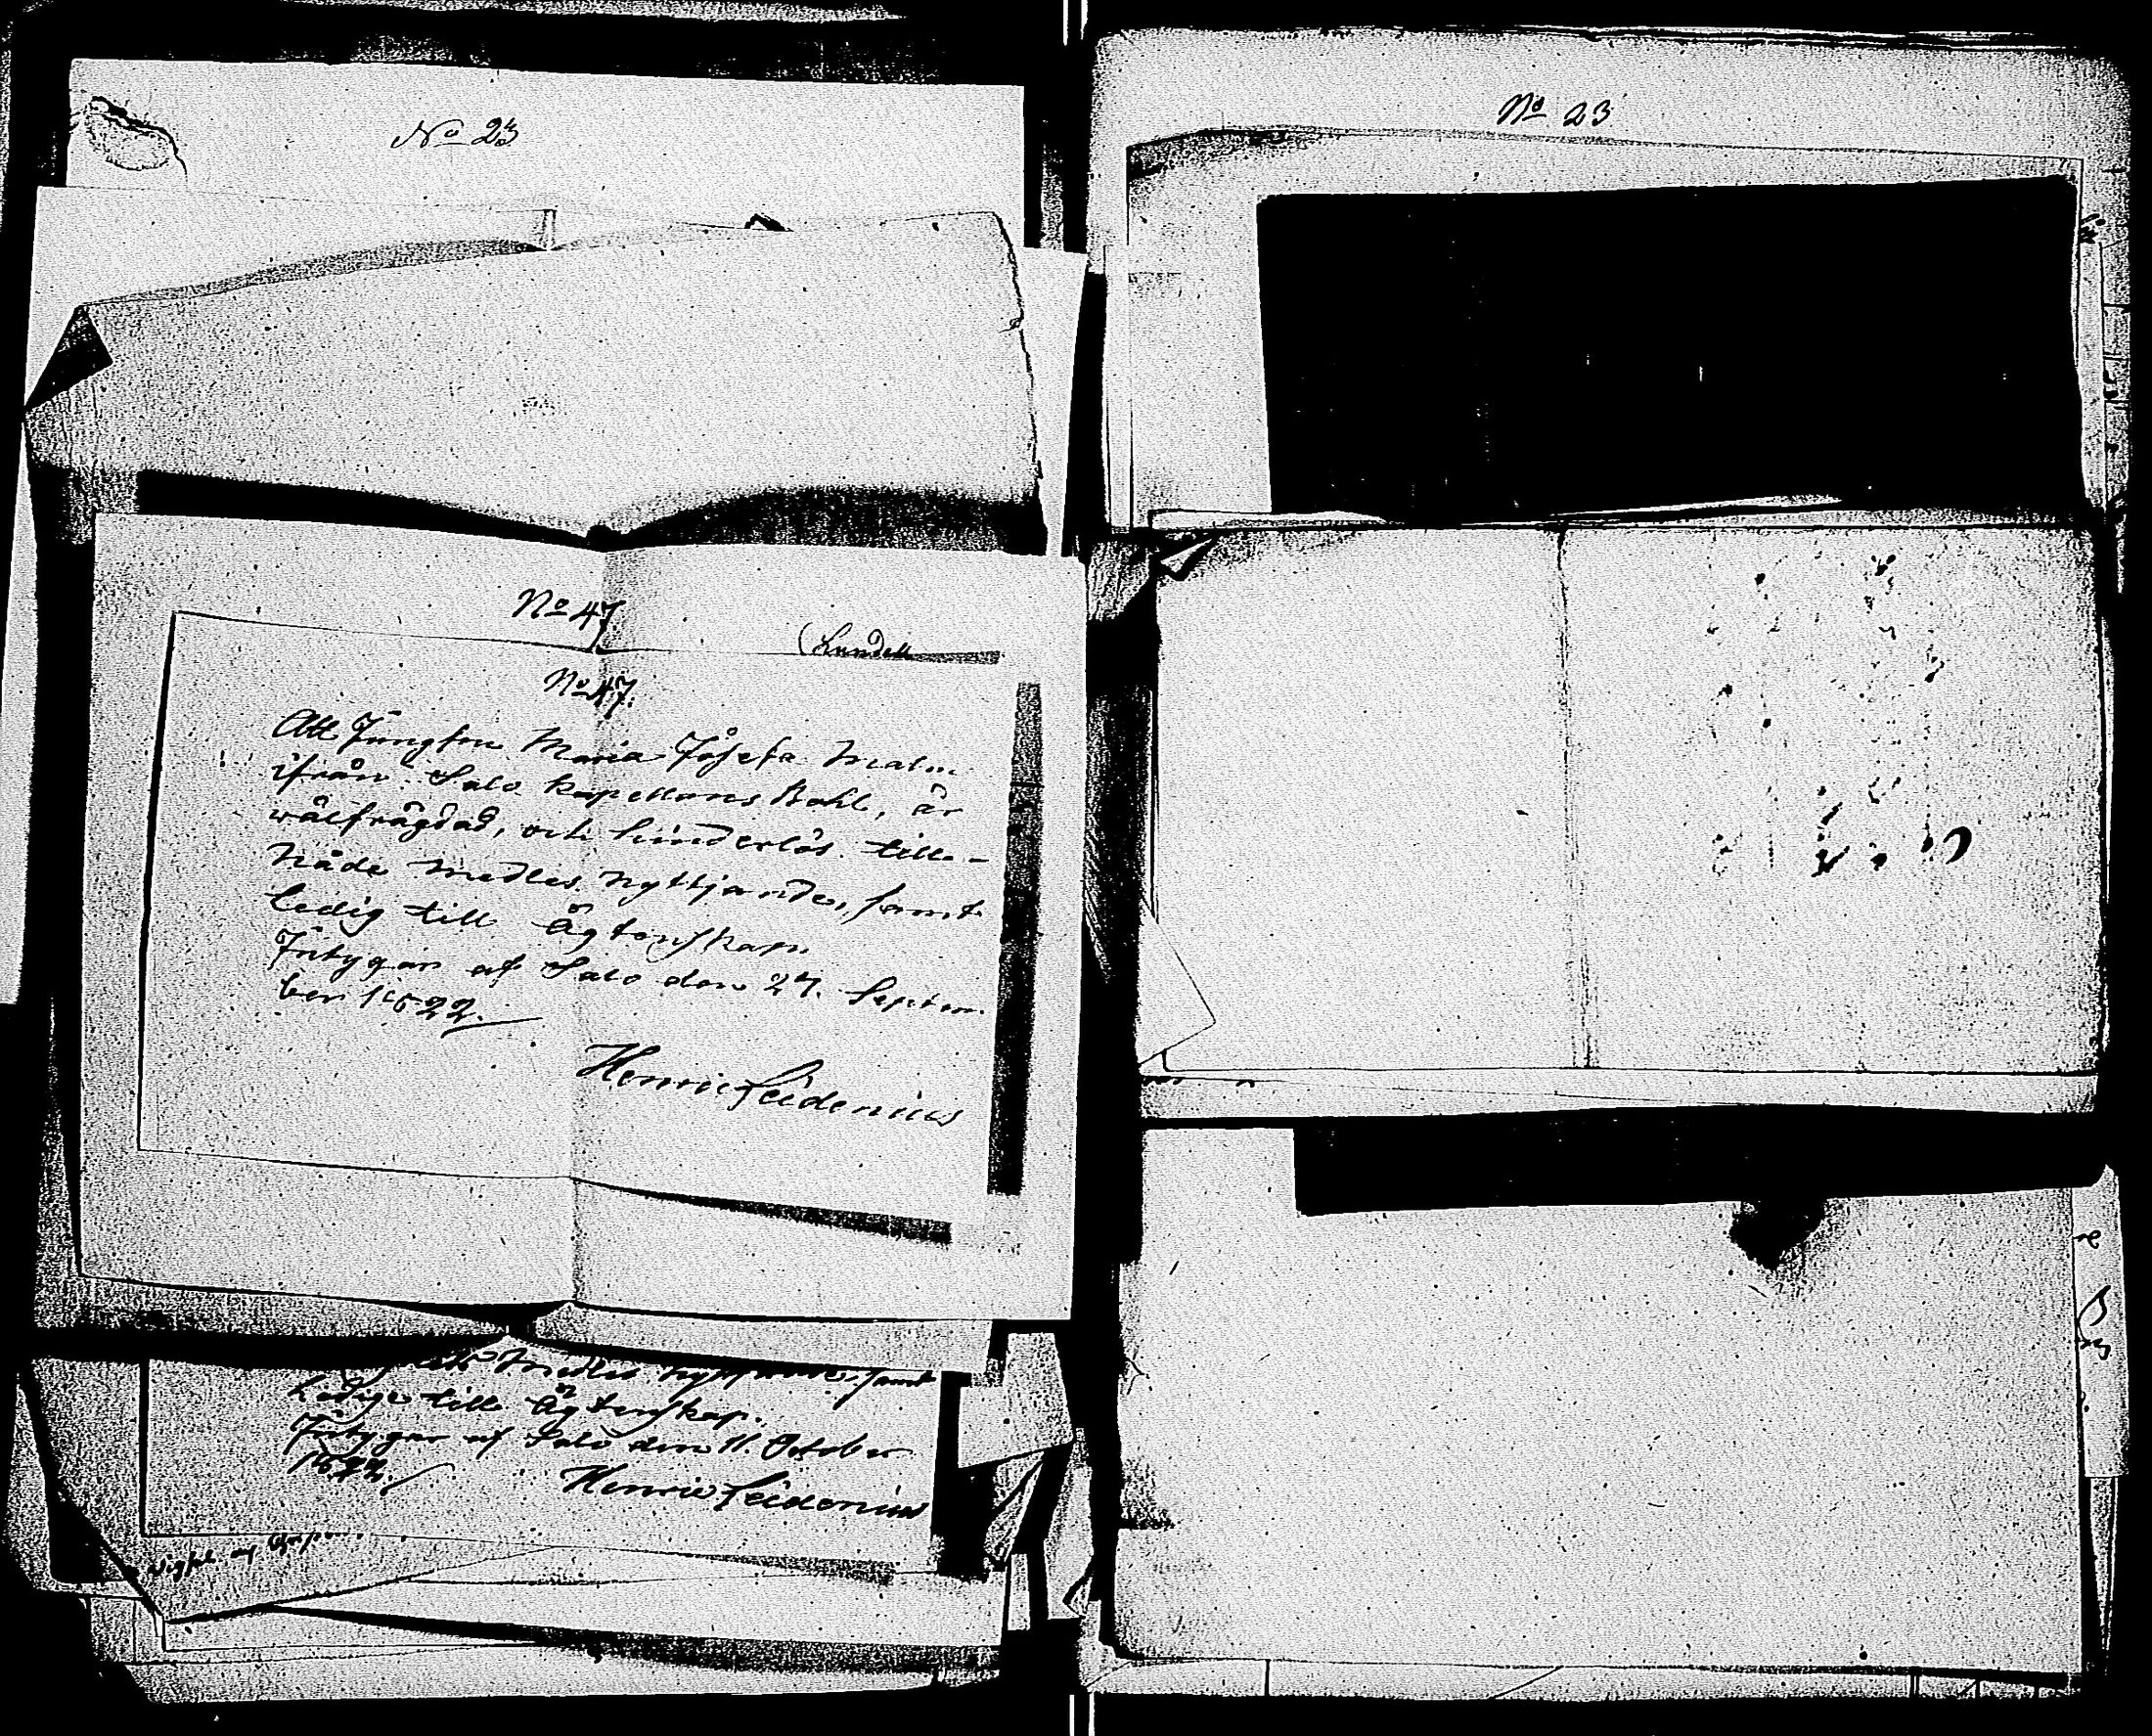 No 23
No 23
No 47.
(Lundell
No 47.
Att Jungfrun Maria Josefa Malm
ifrån Salo Kapellans Bohl, är
wälfrägdad, och hinderlös till
Nåde medlens nyttjande, samt
ledig till Ägtenskap.
Intygar af Salo den 27. Septem-
ber 1822.
Henric Leidenius
medlens samt
Ledige till Ägtenskap.
Intygar af Salo den 11. October
1822.
Henric Leidenius